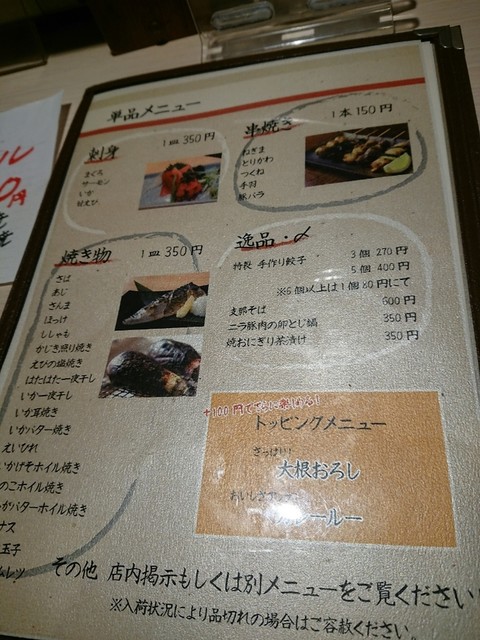 単品メニュー
刺身 1皿 350円
まぐろ
サーモン
いか
甘えび
串焼き 1本 150円
ねぎま
とりかわ
つくね
手羽
豚バラ
焼き物 1皿 350円
さば
あじ
さんま
ほっけ
ししゃも
かじき照り焼き
えびの塩焼き
はたはた一夜干し
いか一夜干し
いか耳焼き
いかバター焼き
えいひれ
いかげそホイル焼き
のこホイル焼き
かバターホイル焼き
ナス
玉子
ムレツ
逸品・〆
特製 手作り餃子 3個 270円
5個 400円
※6個以上は1個80円にて
支那そば 600円
ニラ豚肉の卵とじ鍋 350円
焼おにぎり茶漬け 350円
+100円でさらに楽しめる!
トッピングメニュー
さっぱり!
大根おろし
おいしさアップ
カレールー
その他 店内掲示もしくは別メニューをご覧ください!
※入荷状況により品切れの場合はご容赦ください
ル
0円